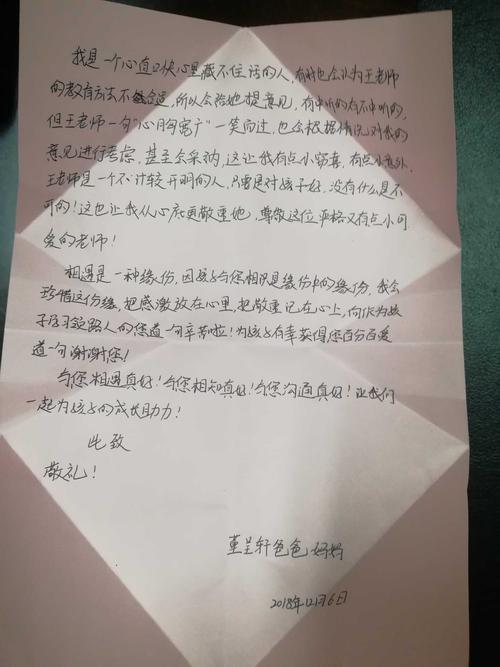 我是一个心直口快心里藏不住话的人,有时也会认为王老师
的教育方法不合适,所以会给她提意见,有中听的有不中听的,
但王老师一句“心胸宽广”一笑而过,也会根据情况对我的
意见进行考虑,甚至会采纳,这让我有点小窃喜,有点小意外,
王老师是一个不计较开明的人,只要是对孩子好,没有什么是不
可的!这也让我从心底更敬重她,尊敬这位严格又有点小可
爱的老师!
相遇是一种缘份,因孩子与您相识是缘份中的缘份,我会
珍惜这份缘,把感激放在心里,把敬重记在心上,向作为孩
子学习领路人的您道一句辛苦啦!为孩子有幸获得您百分百爱
道一句谢谢您!
与您相遇真好!与您相知真好!与您沟通真好!让我们
一起为孩子的成长助力!
此致
敬礼!
董呈轩爸爸 妈妈
2018年12月6日